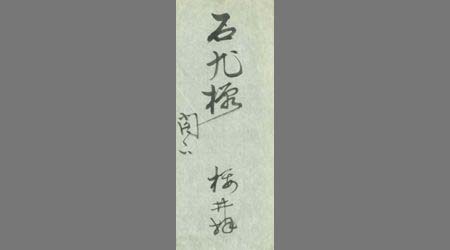 石光様
閣下
桜井拝